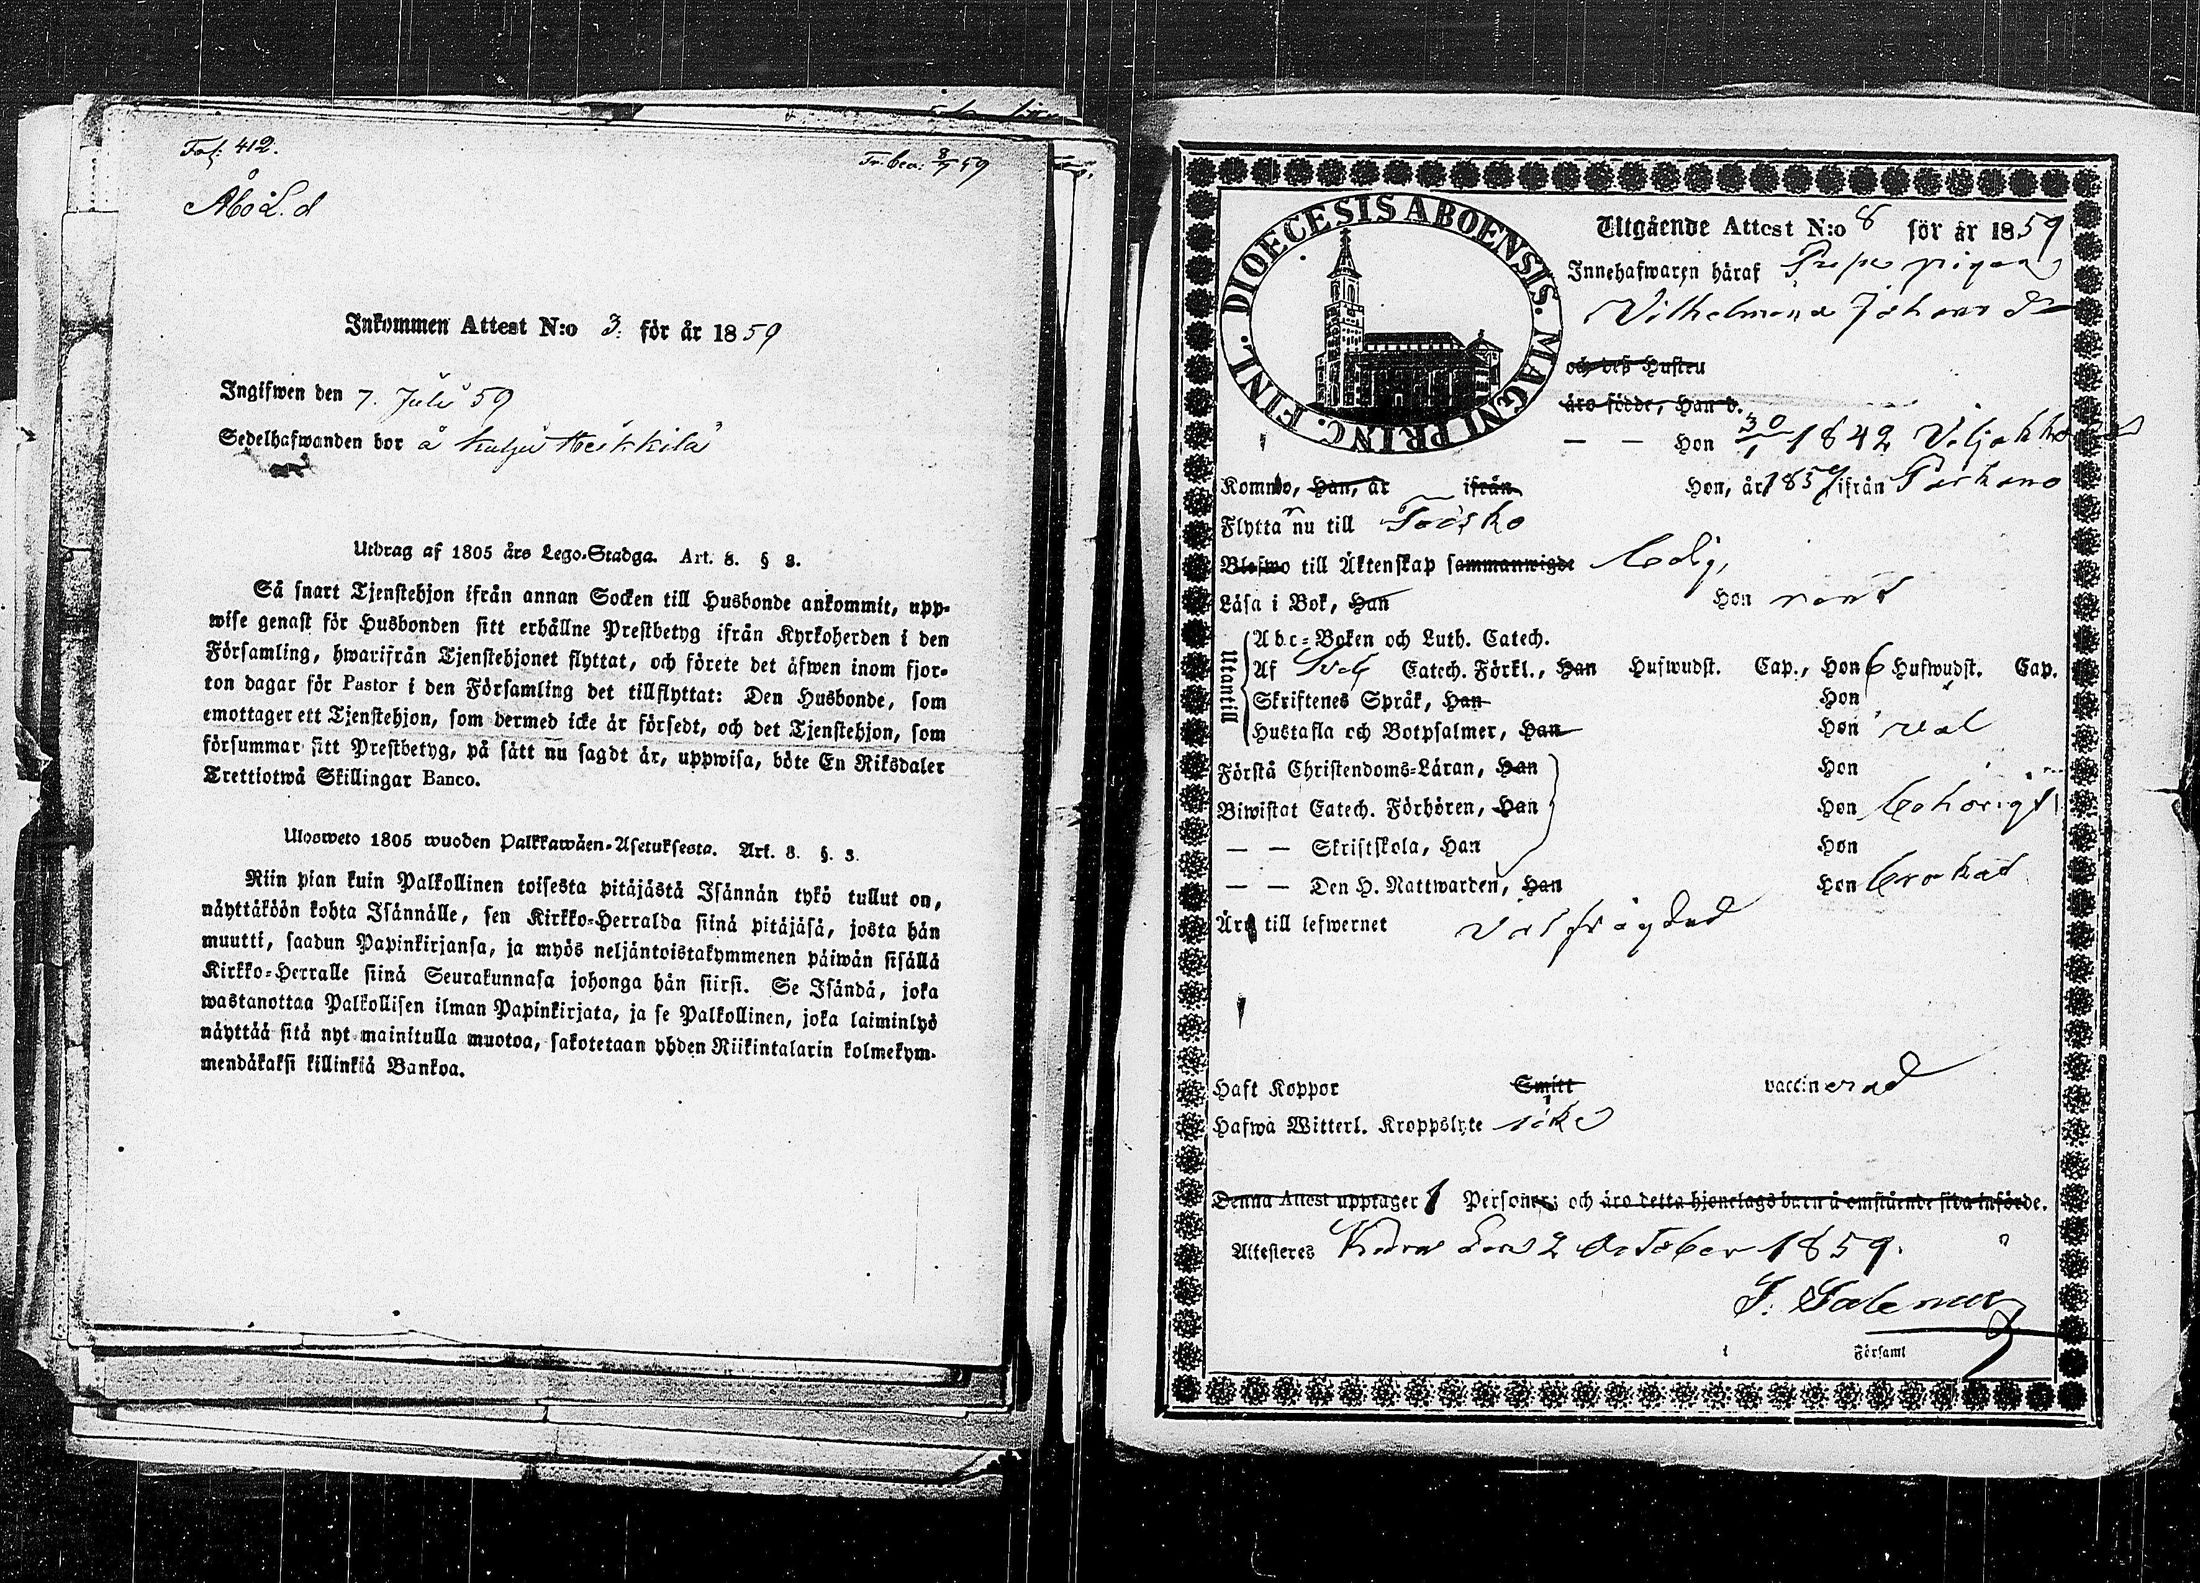 Fol: 412.
Tr. bea: 8/7 59
Åbo L. d
Inkommen Attest N:o 3. för år 1859
Ingifwen den 7. Juli 59
Sedelhafwanden bor å Kulju Heikkilä
Utdrag af 1805 års Lego-Stadga. Art. 8. § 3.
Så snart Tjenstehjon ifrån annan Socken till Husbonde ankommit, upp-
wise genast för Husbonden sitt erhållne Prestbetyg ifrån Kyrkoherden i den
Församling, hwarifrån Tjenstehjonet flyttat, och förete det äfwen inom fjor-
ton dagar för Pastor i den Församling det tillflyttat: Den Husbonde, som
emottager ett Tjenstehjon, som dermed icke är försedt, och det Tjenstehjon, som
försummar sitt Prestbetyg, på sätt nu sagdt är, uppwisa, böte En Riksdaler
Trettiotwå Skillingar Banco.
Ulosweto 1805 wuoden Palkkawäen-Asetuksesta. Art. 8. §. 3.
Niin pian kuin Palkollinen toisesta pitäjästä Isännän tykö tullut on,
näyttäköön kohta Isännälle, sen Kirkko-Herralda siinä pitäjäsä, josta hän
muutti, saadun Papinkirjansa, ja myös neljäntoistakymmenen päiwän sisällä
Kirkko-Herralle siinä Seurakunnasa johonga hän siirsi. Se Isändä, joka
wastanottaa Palkollisen ilman Papinkirjata, ja se Palkollinen, joka laiminlyö
näyttää sitä nyt mainitulla muotoa, sakotetaan yhden Riikintalarin kolmekym-
mendäkaksi killinkiä Bankoa.
DIOECESIS ABOENSIS. MAGNI PRINC. FINL.
Utgående Attest N:o 8 för år 1859
Innehafwaren häraf pigan
Vilhelmina Johans Dr
och deß Hustru
äro födde, Han d.
— — Hon 30/1 1842 Viljakkala
Kommo, Han, år ifrån Hon, år 1857 ifrån Parkano
Flyttar nu till Toösko
Blefwo till Äktenskap sammanwigde ledig,
Läsa i Bok, Han Hon rent
Utantill
Abc-Boken och Luth. Catech.
Af Sveb Catech. Förkl., Han Hufwudst. Cap., Hon 6 Hufwudst. Cap.
Skriftenes Språk, Han Hon
Hustafla och Botpsalmer, Han Hon väl
Förstå Christendoms-Läran, Han Hon
Biwistat Catech. Förhören, Han Hon behörigt
— — Skriftskola, Han Hon
— — Den H. Nattwarden, Han Hon brukat
Äro till lefwernet välfrägdad
Haft Koppor Smitt vaccinerad
Hafwa Witterl. Kroppslyte icke
Denna Attest upptager 1 Personer; och äro detta hjonelags barn å omstående sida införde.
Attesteras den 2 October 1859.
F. Salenius
i Församl